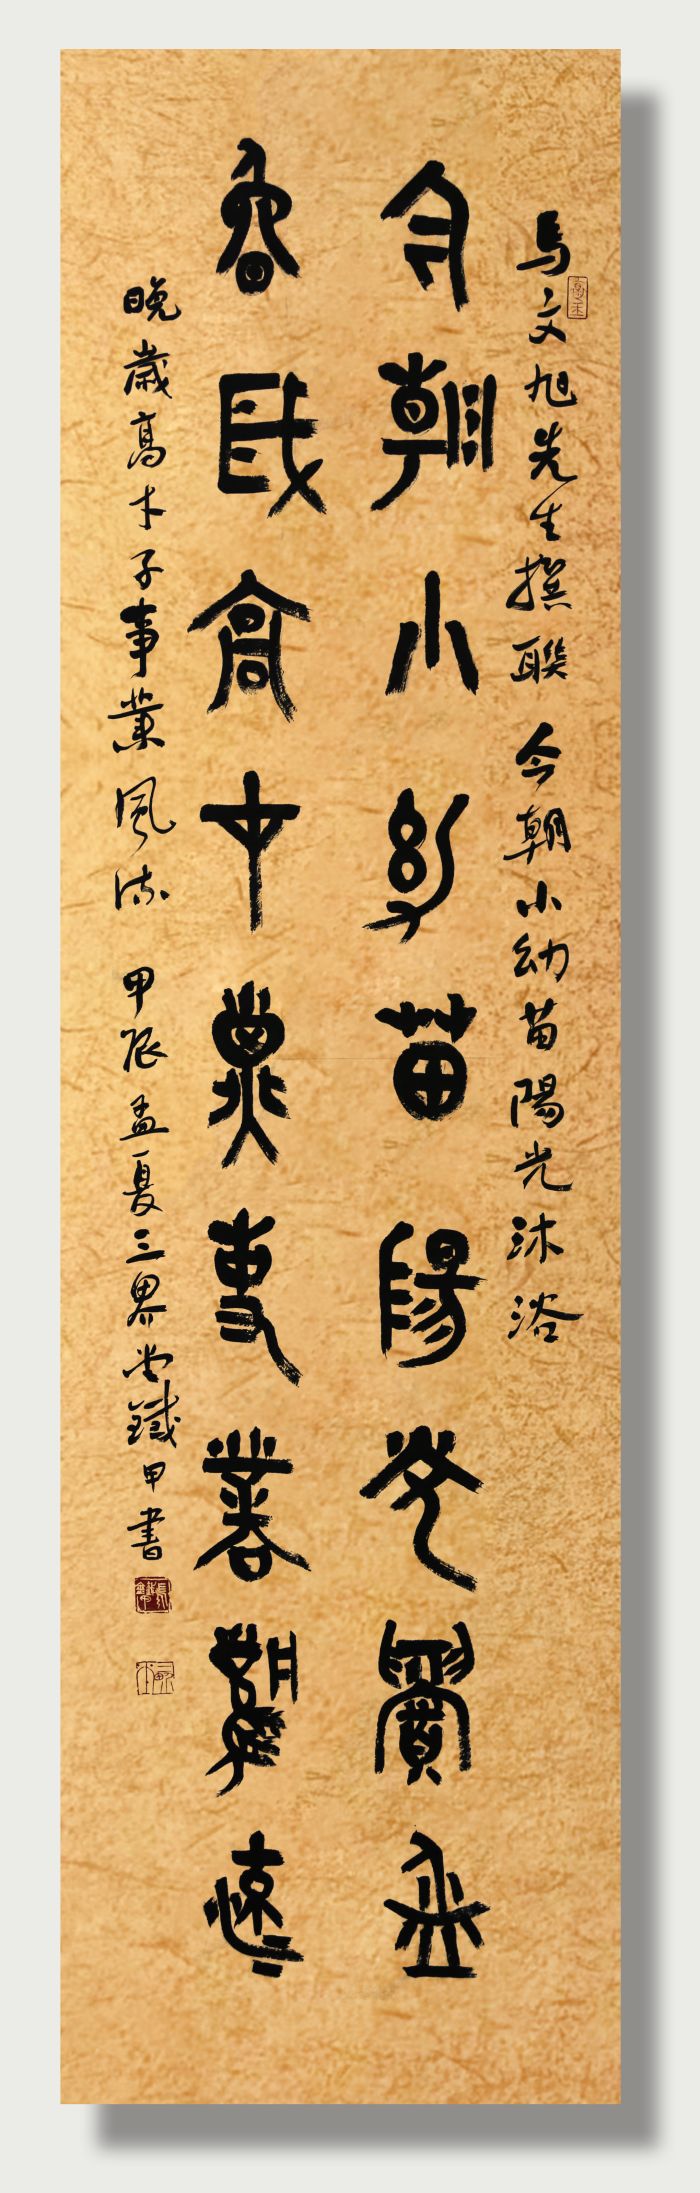 馬文旭先生撰聯 今朝小幼苗陽光沐浴
今朝小幼苗陽光沐浴
晚歲高才子事業風流
晚歲高才子事業風流 甲辰孟夏三界堂鐵甲書